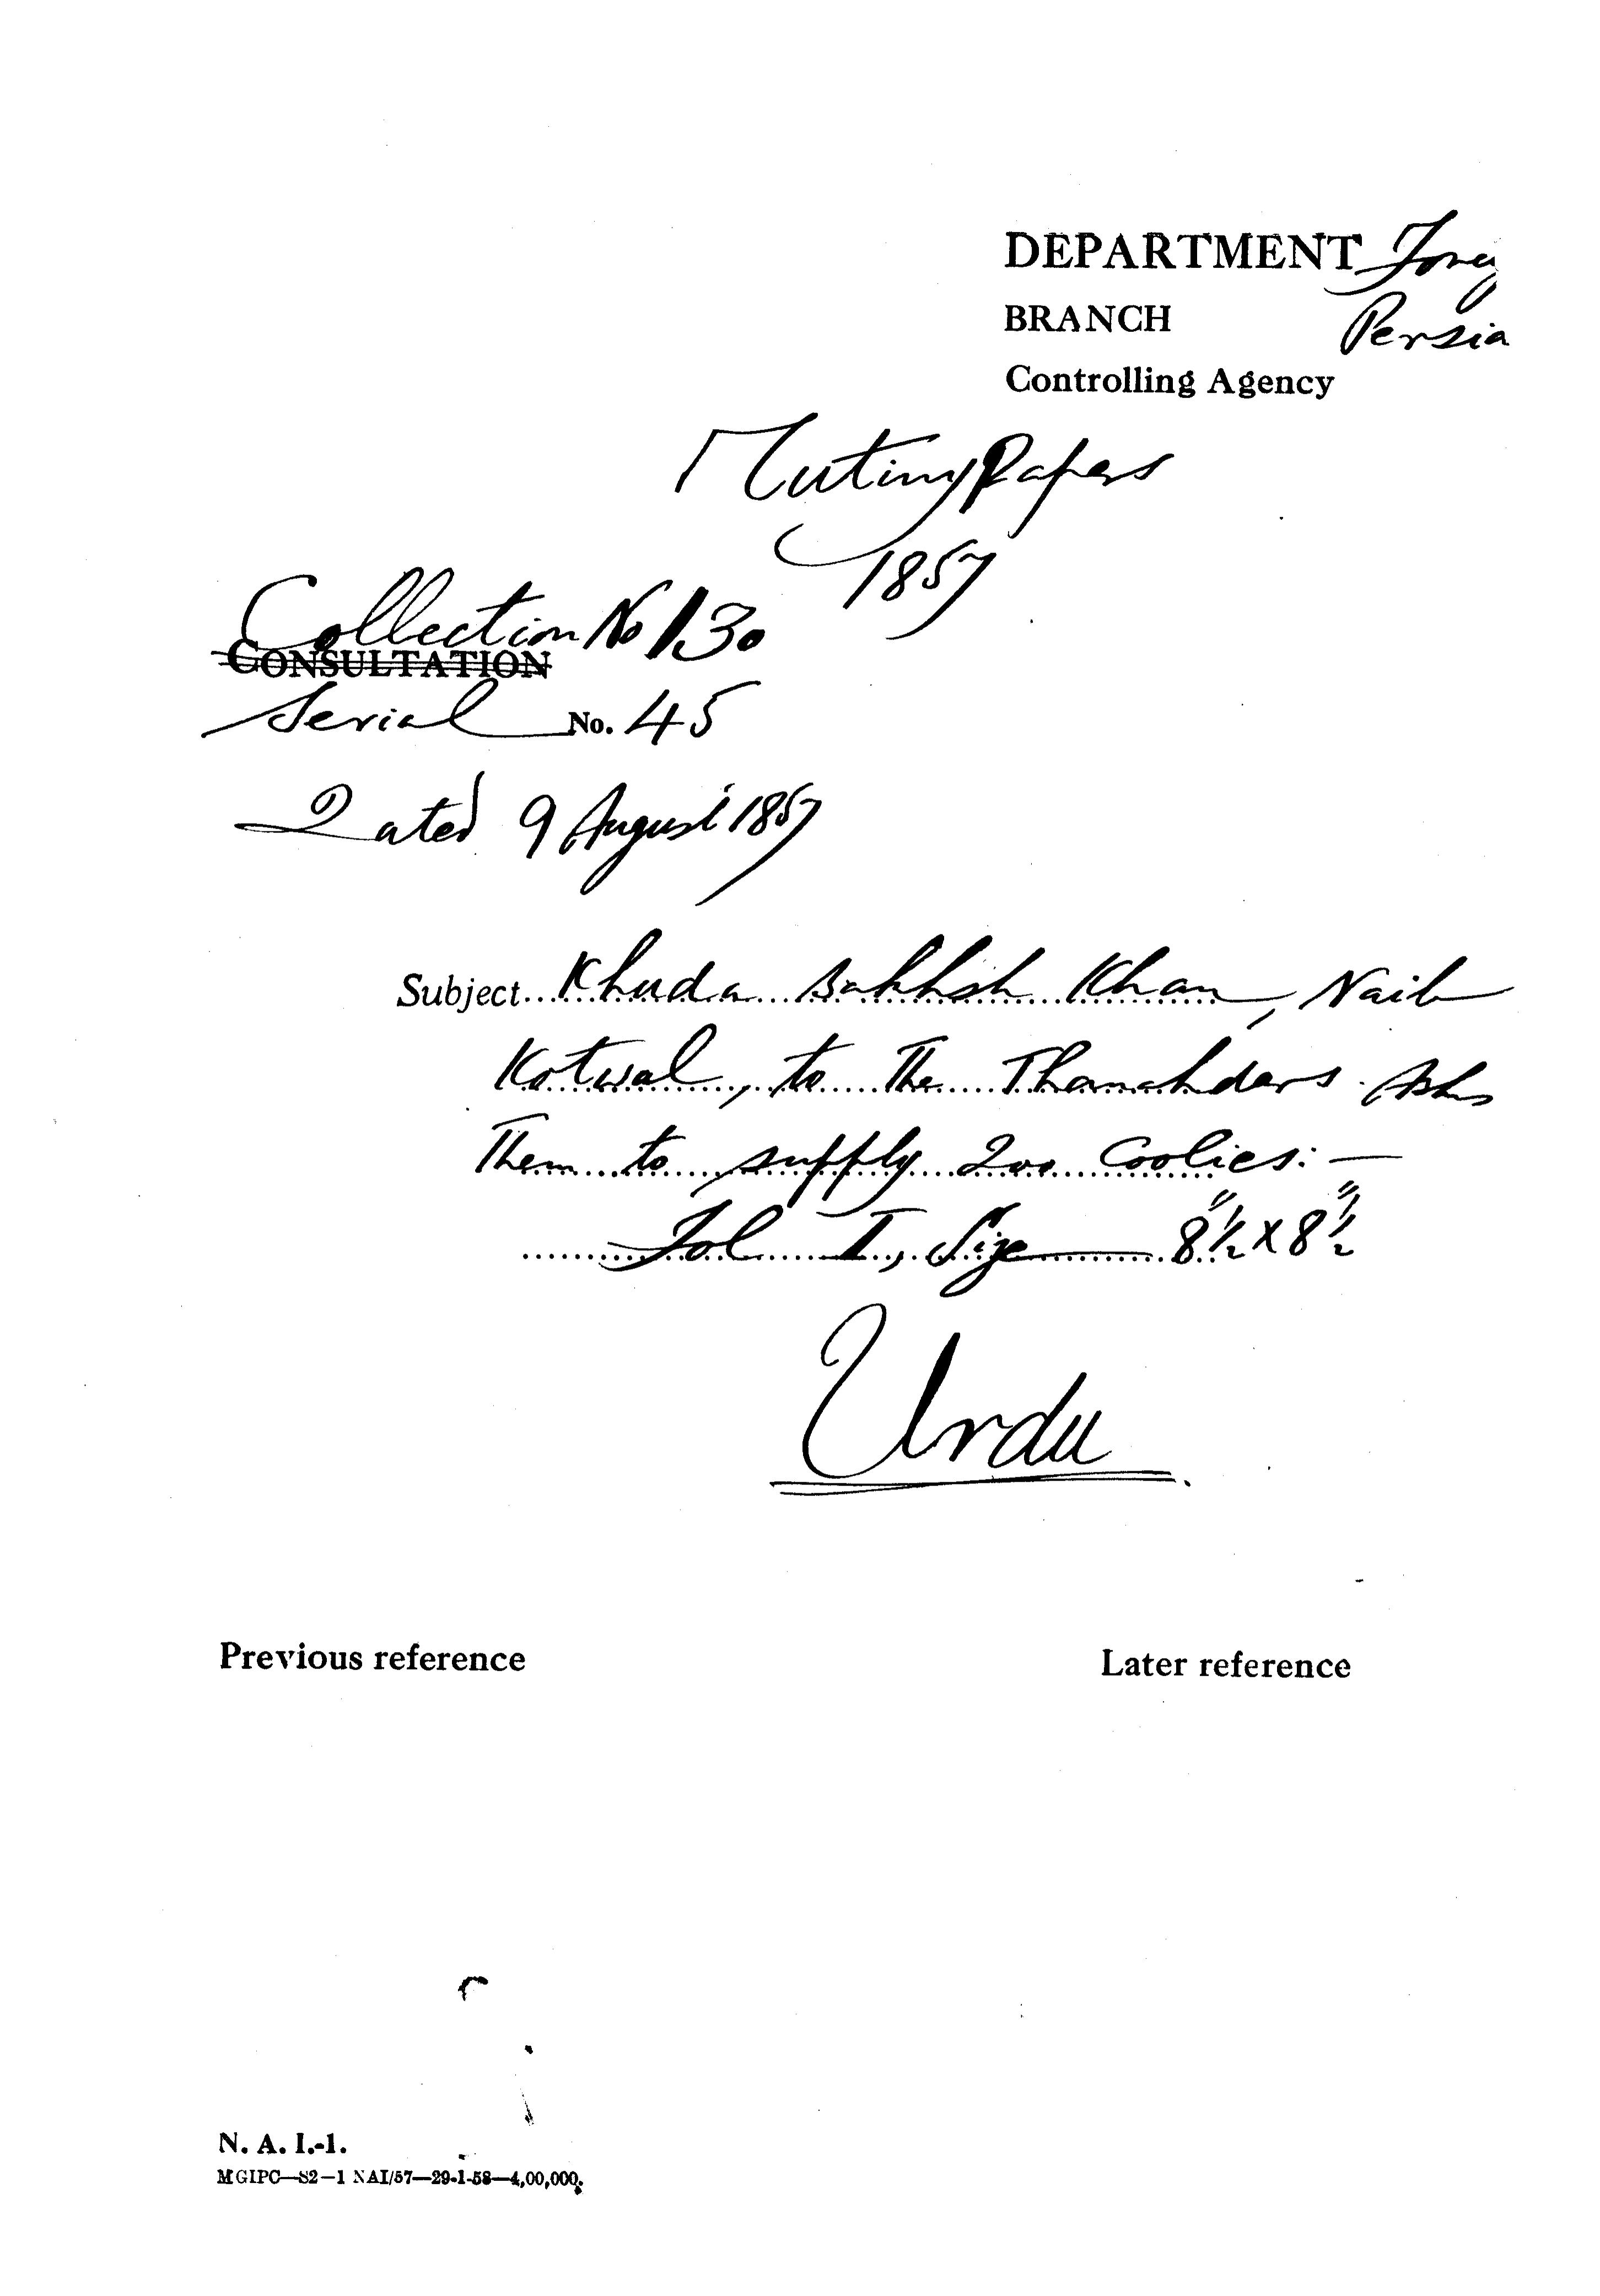 DEPARTMENT
BRANCH Persia
Controlling Agency
Mutiny Papers
1857
Collection No 130
CONSULTATION
Serial No. 45
Dated 9 August 1857
Subject Khuda Bakhsh Khan, Naib
Kotwal, to The Thanahders. Asks
Them to supply 200 Coolies:—
Fol I, Size 8½" x 8½"
Urdu
Previous reference
Later reference
N. A. I.-1.
MGIPC—S2—1 NAI/57—29-1-58—4,00,000.